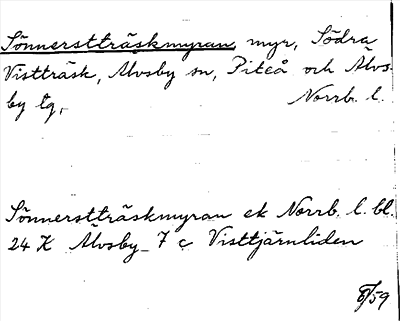 Sönnerstträskmyran, myr, Södra
Vistträsk, Älvsby sn, Piteå och Älvs-
by tg,   Norrb. l.
Sönnerstträskmyran ek Norrb. l. bl.
24 K Älvsby_ 7 c Visttjärnliden
8/59